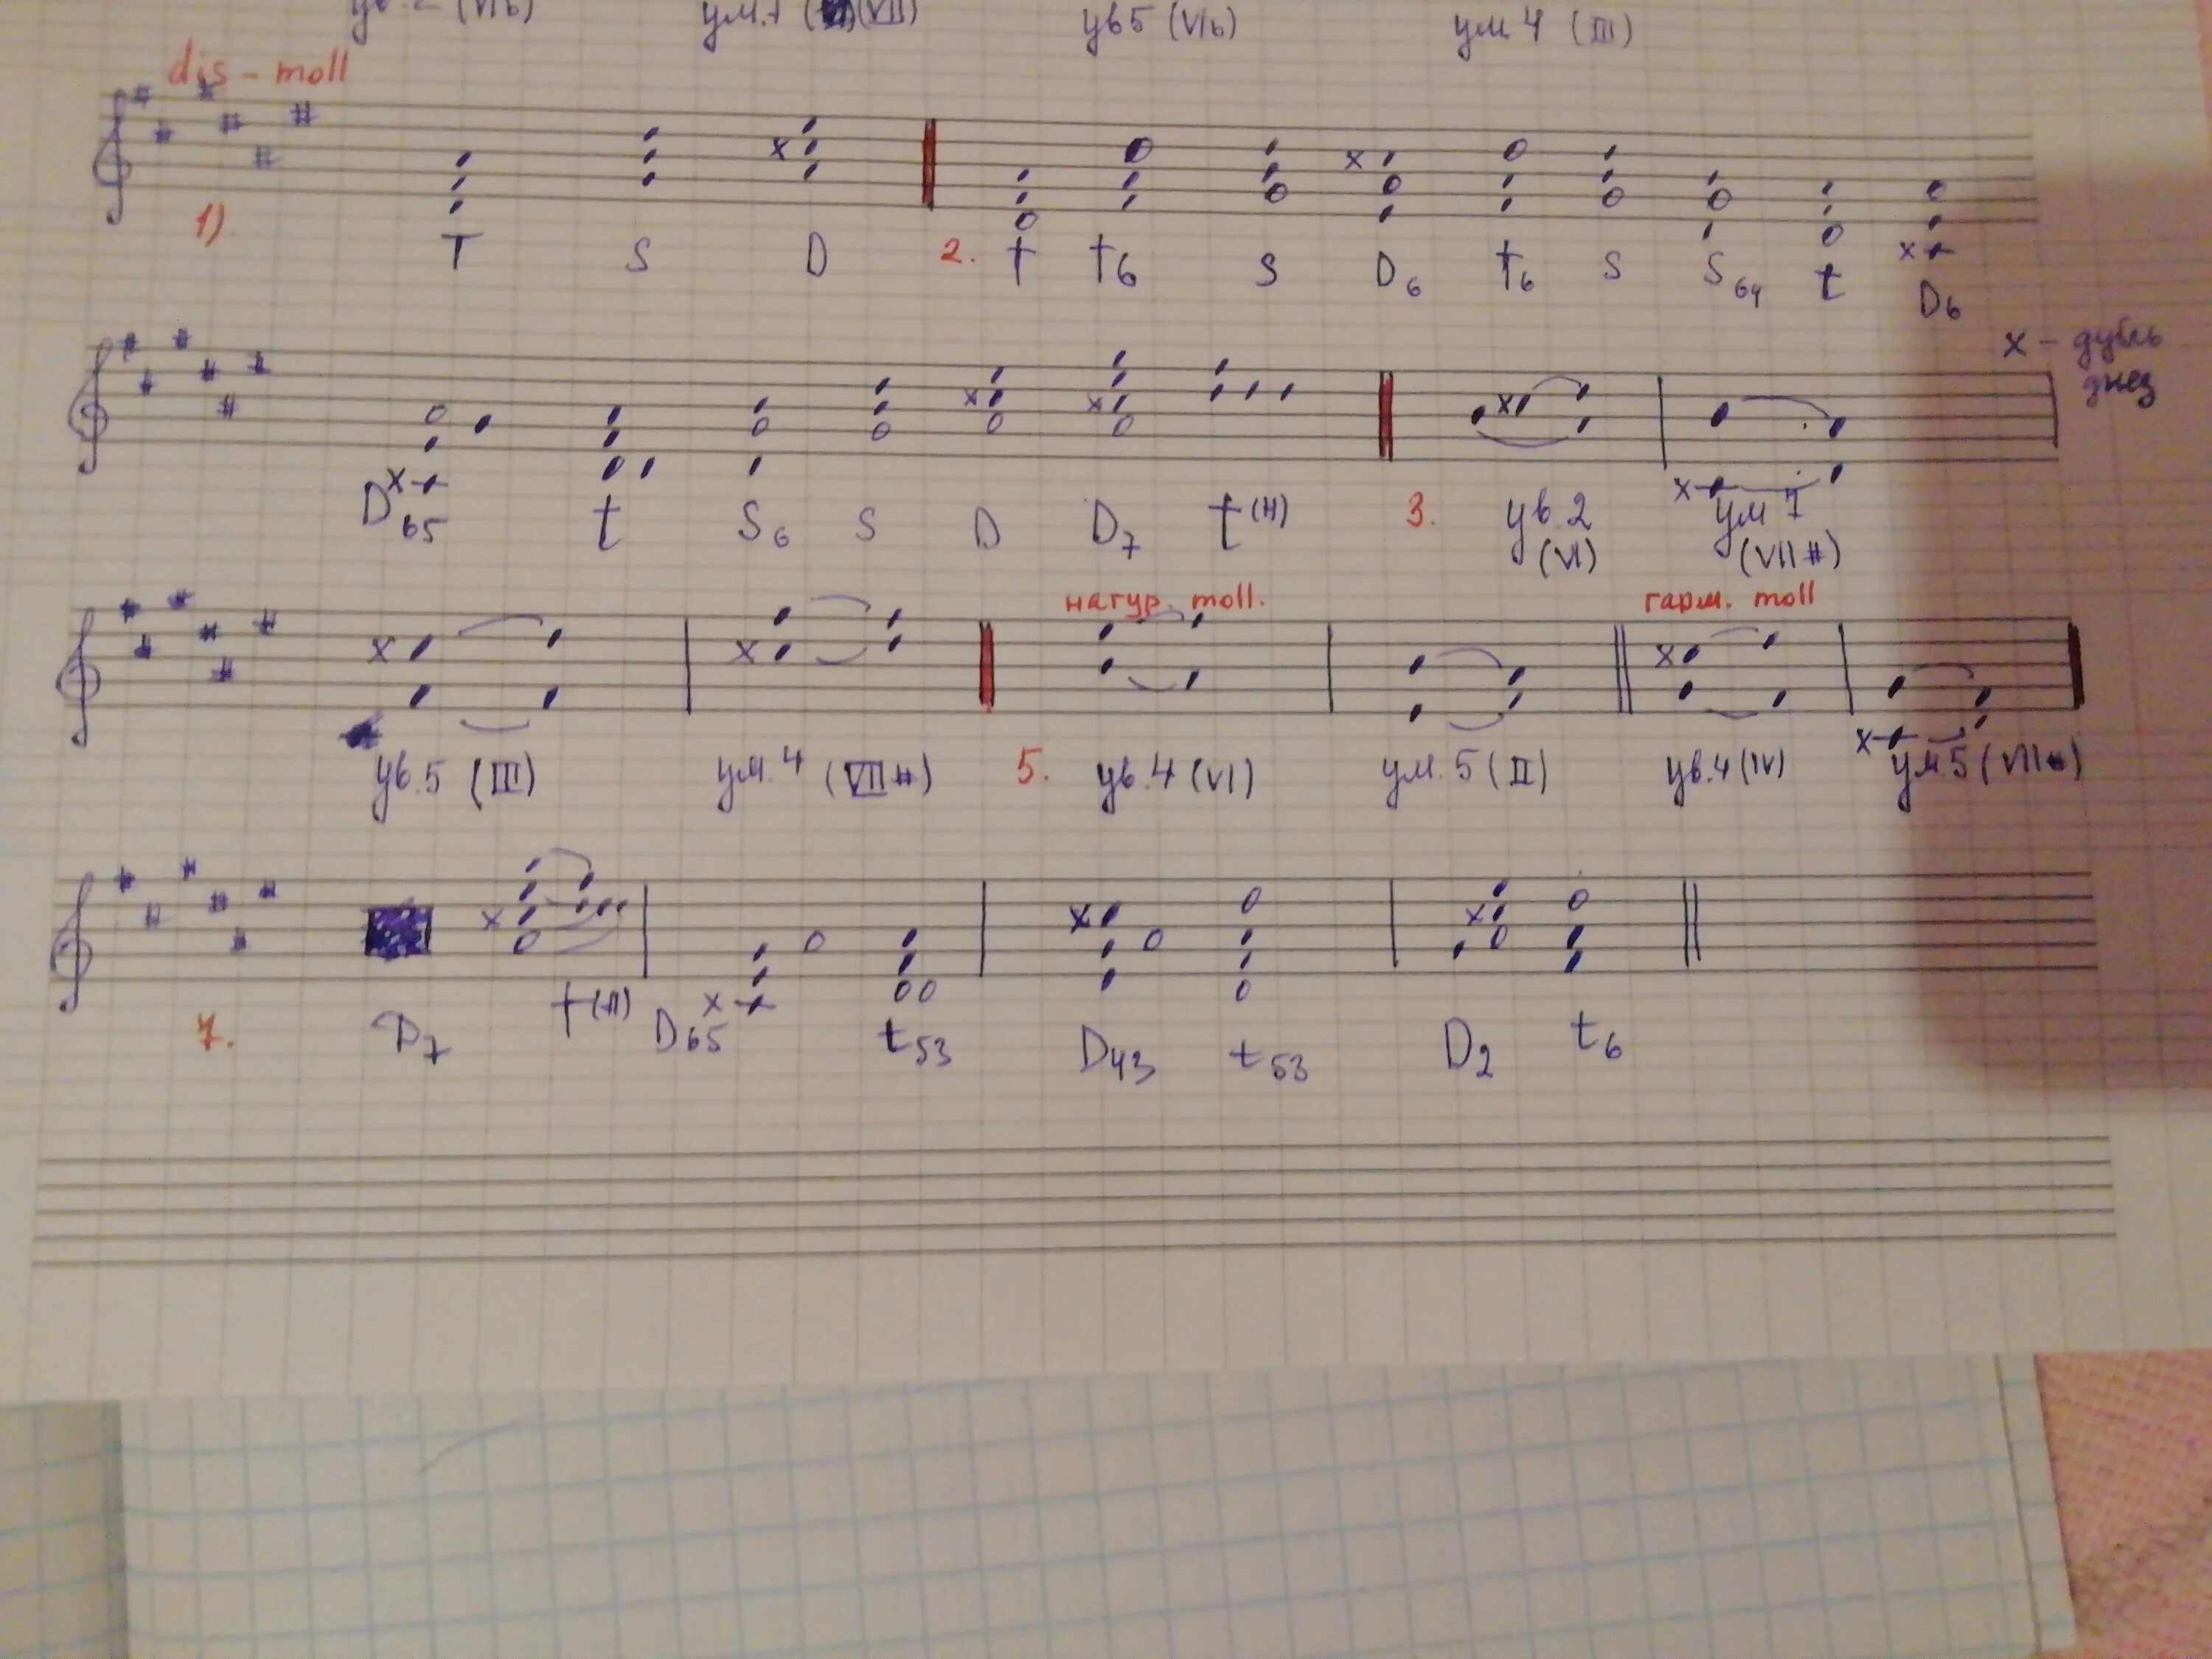 ув.2 (VIb) ум.7 (VII) ув5 (VIb) ум 4 (III)
dis-moll
1). T S D 2. t t6 S D6 t6 S S64 t D6
x - дубль
диез
D65 t S6 S D D7 t(н) 3. ув.2 (VI) ум 7 (VII#)
натур. moll. гарм. moll
ув.5 (III) ум.4 (VII#) 5. ув.4 (VI) ум.5 (II) ув.4 (IV) ум.5 (VII#)
7. D7 t(н) D65 t53 D43 t53 D2 t6